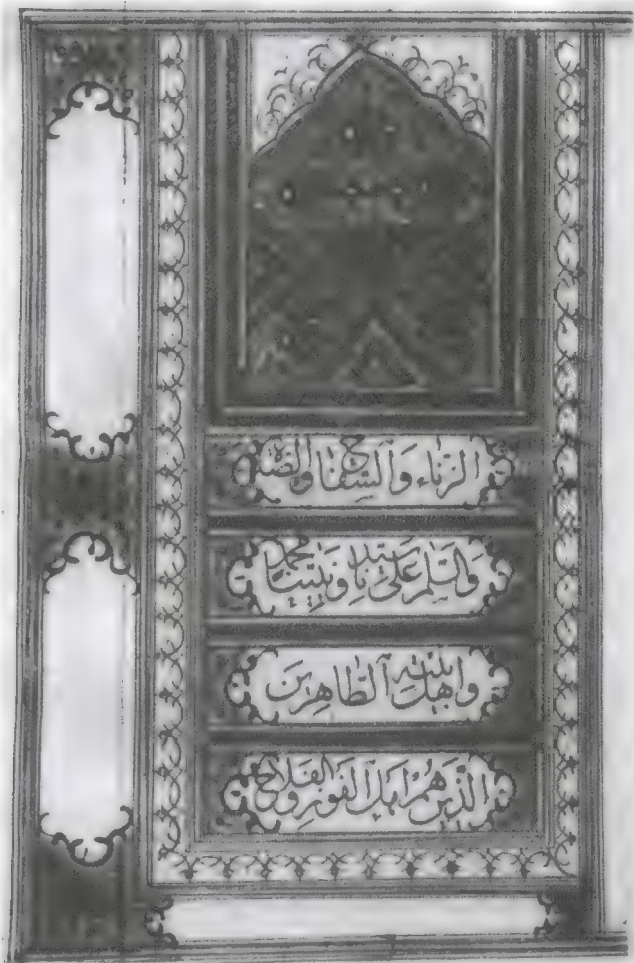 الزِّنَاءِ وَالسِّفَاحِ وَالصَّلَ
وَالسَّلَمِ عَلَى سَيِّدِنَا وَنَبِيِّنَا مُحَمَّد
وَاهل بَيْتِهِ الطَّاهِرِينَ
الَّذِينَ هُمْ اَهل الفَوْزِ وَالفَلَاح